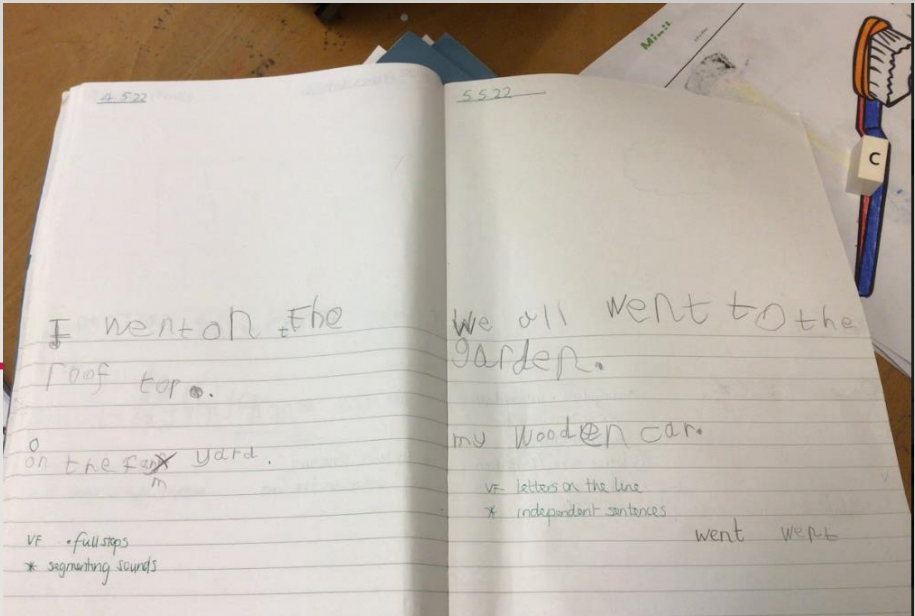 4.5.22
I went on the
roof top.
O
on the farm yard.
m
VF • full stops
* segmenting sounds
5.5.22
We all went to the
garden.
my wooden car.
VF letters on the line
* independent sentences
went went
C